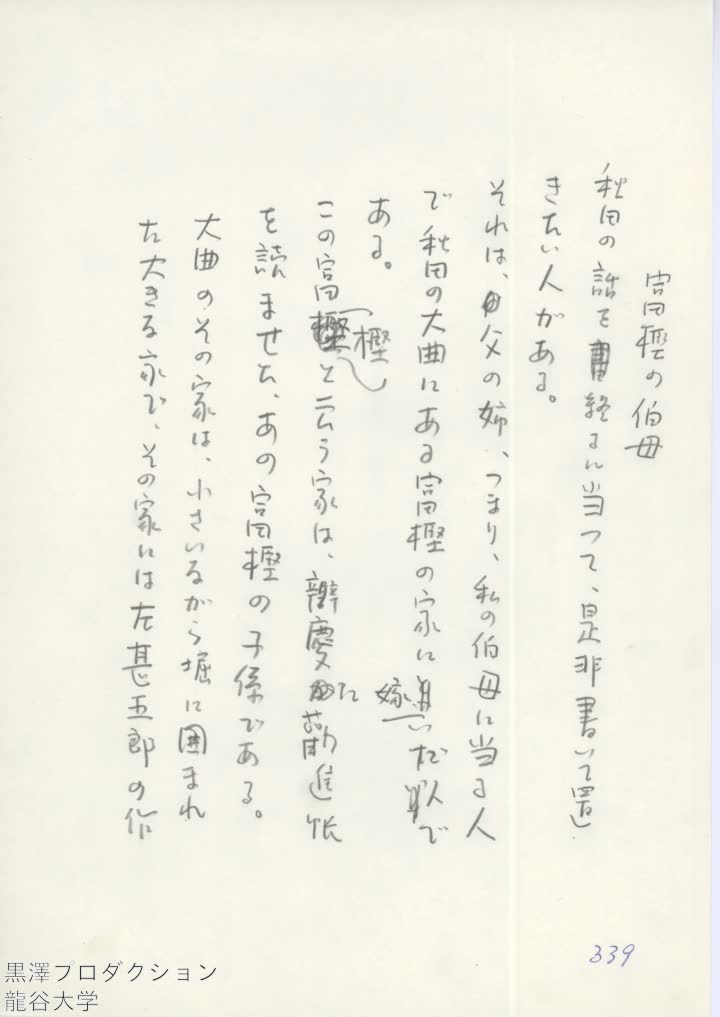 富樫の伯母
秋田の話を終るに当つて、是非書いて置
きたい人がある。
それは、父の姉、つまり、私の伯母に当る人
で秋田の大曲にある富樫の家に嫁いだ人で
ある。
この富樫と云う家は、辯慶に勧進帳
を読ませた、あの富樫の子孫である。
大曲のその家は、小さいながら堀に囲まれ
た大きな家で、その家には左甚五郎の作
339
黒澤プロダクション
龍谷大学